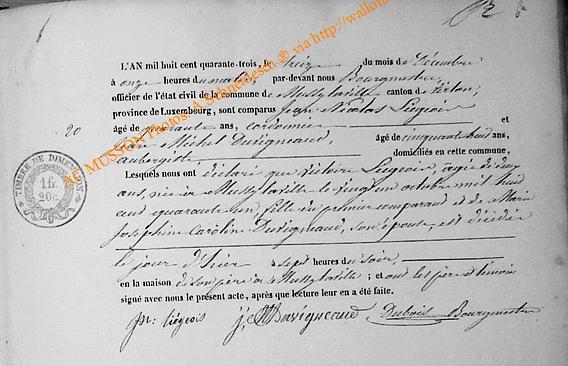 20
L'AN mil huit cent quarante-trois, le treize du mois de Décembre
à onze heures du matin, par-devant nous Bourgmestre,
officier de l'état civil de la commune de Mussy la ville canton de Virton,
province de Luxembourg, sont comparus Jean Nicolas
âgé de quarante ans, cordonnier et
Jean Michel Duvigneaud, âgé de cinquante huit ans,
aubergiste, domiciliés en cette commune,
Lesquels nous ont déclaré que Victoire âgée de deux
ans, née à Mussy la ville le vingt un octobre mil huit
cent quarante un, fille du premier comparant et de Marie
Josephine Caroline Duvigneaud, son épouse, est décédée
le jour d'hier à sept heures du soir,
en la maison de son père à Mussy la ville; et ont les père et témoin
signé avec nous le présent acte, après que lecture leur en a été faite.
liégeois J. M. Duvigneaud Dubois Bourgmestre
TIMBRE DE DIMENSION
20c
AC MUSSON Photos: A Schneidesch ® via http://wallonia